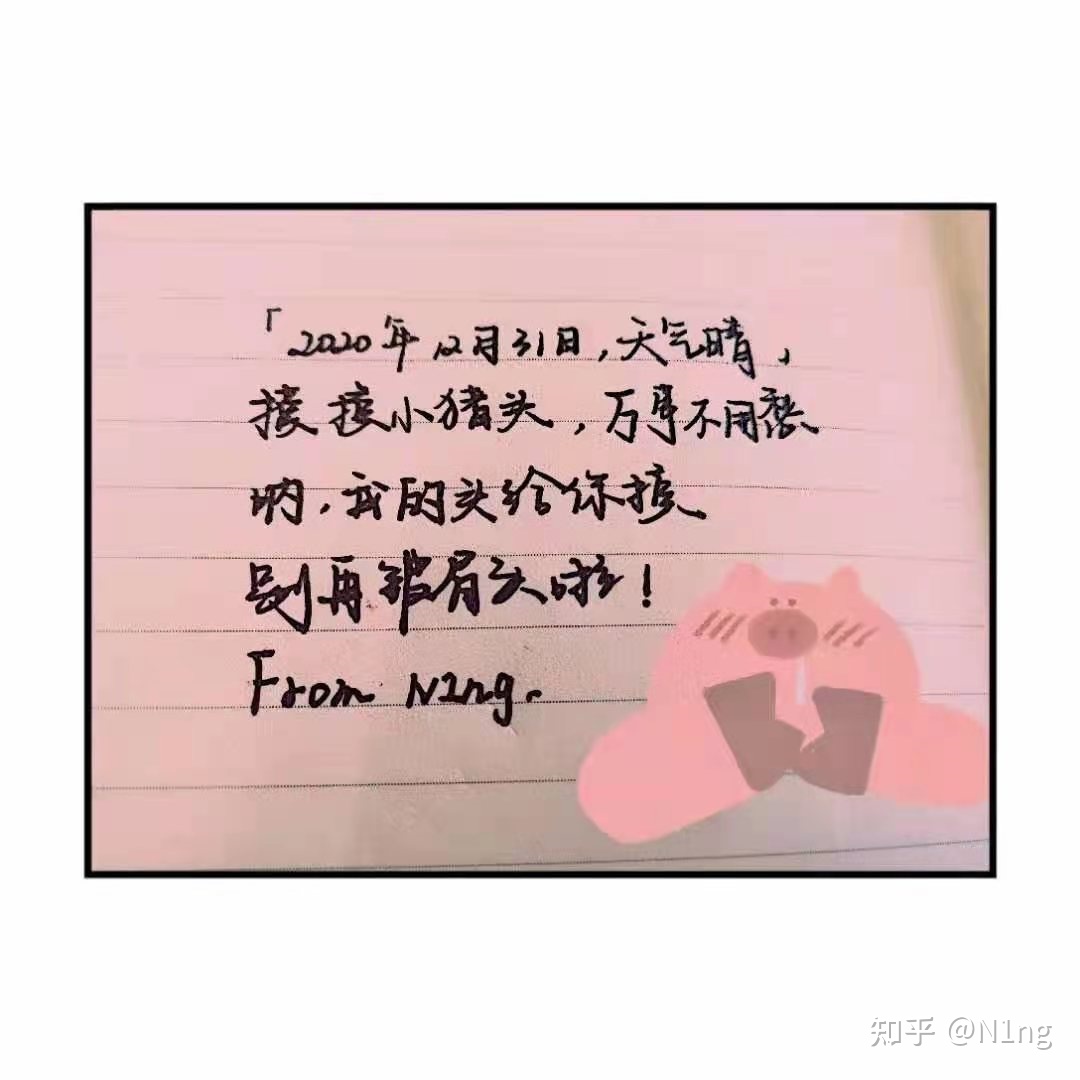 「2020年12月31日,天气晴,
摸摸小猪头,万事不用愁
呐,我的头给你摸
别再皱眉头啦!
From N1ng.
知乎 @N1ng